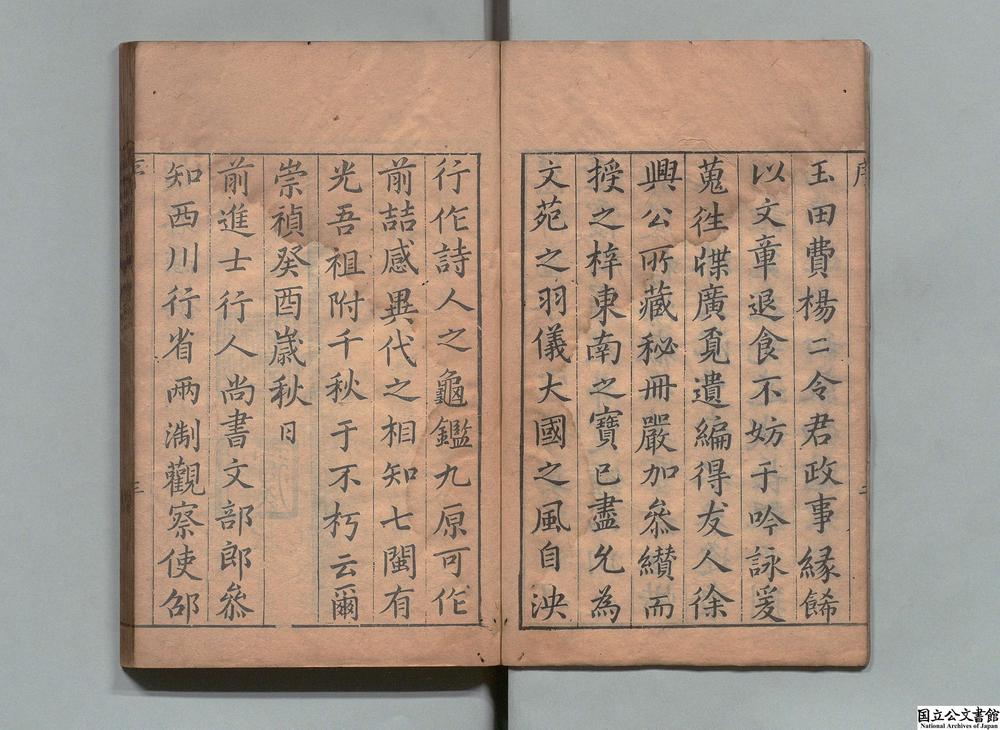 序
玉田費楊二令君政事緣餙
以文章退食不妨于吟詠爰
蒐徃牒廣覓遺編得友人徐
興公所藏秘冊嚴加叅纘而
授之梓東南之寶已盡允為
文苑之羽儀大國之風自泱
二
行作詩人之龜鑑九原可作
前喆感異代之相知七閩有
光吾祖附千秋于不朽云爾
崇禎癸酉歲秋日
前進士行人尚書文部郎叅
知西川行省兩淛觀察使邵
三
国立公文書館
National Archives of Japan